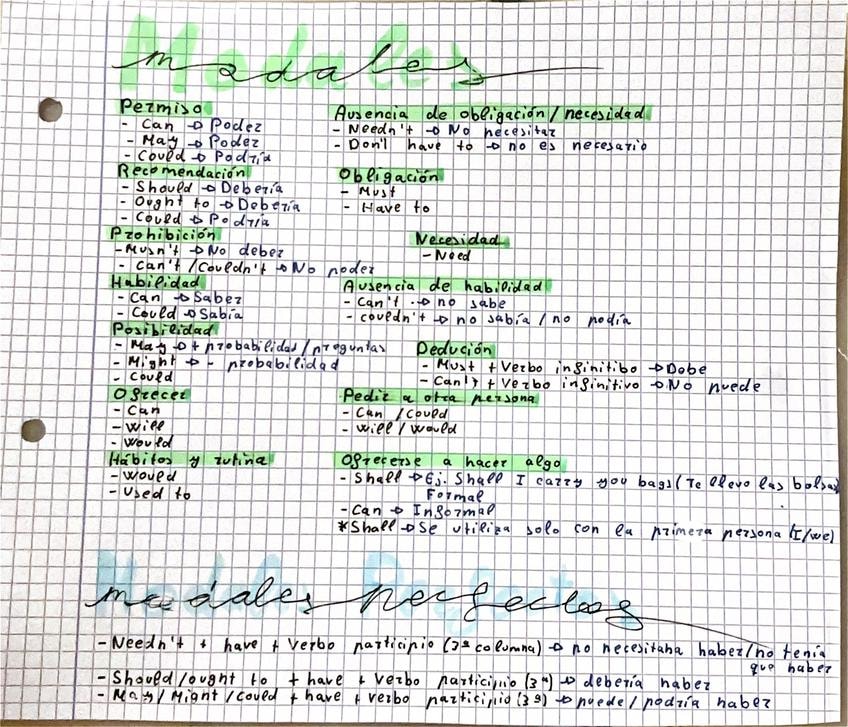 Modales
Permiso
- Can → Poder
- May → Poder
- Could → Podría
Recomendación
- Should → Debería
- Ought to → Debería
- Could → Podría
Prohibición
- Musn't → No deber
- Can't / Couldn't → No poder
Habilidad
- Can → Saber
- Could → Sabía
Posibilidad
- May → + probabilidad / preguntas
- Might → - probabilidad
- Could
Ofrecer
- Can
- Will
- Would
Hábitos y rutina
- Would
- Used to
Ausencia de obligación / necesidad
- Needn't → No necesitar
- Don't have to → no es necesario
Obligación
- Must
- Have to
Necesidad
- Need
Ausencia de habilidad
- Can't → no sabe
- couldn't → no sabía / no podía
Dedución
- Must + Verbo infinitibo → Dobe
- Can't + Verbo infinitivo → No puede
Pedir a otra persona
- Can / Could
- Will / Would
Ofrecerse a hacer algo
- Shall → Ej. Shall I carry you bags (Te llevo las bolsas)
Formal
- Can → Informal
*Shall → Se utiliza solo con la primera persona (I/we)
Modales Perfectos
- Needn't + have + Verbo participio (3ª columna) → no necesitaha haber/no tenía
que haber
- Should/ought to + have + Verbo participio (3ª) → debería haber
- May/Might/Could + have + verbo participio (3ª) → puede/podría haber